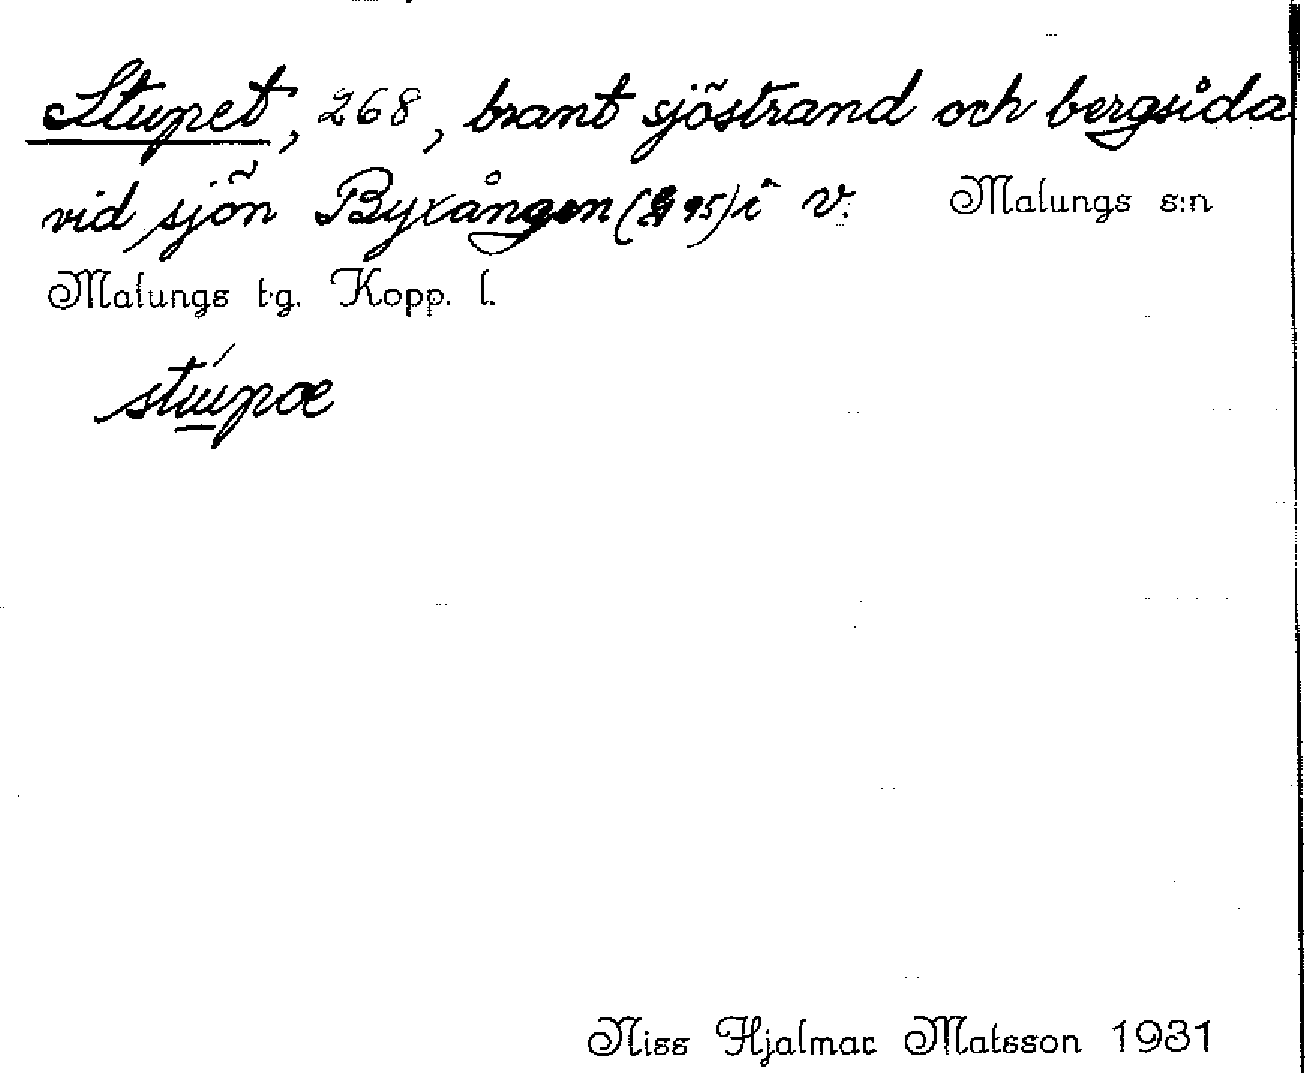 Stupet, 268, brant sjöstrand och bergsida
vid sjön Byxången (95) i v. Malungs s:n
Malungs tg. Kopp. l.
stúpæ
Niss Hjalmar Matsson 1931